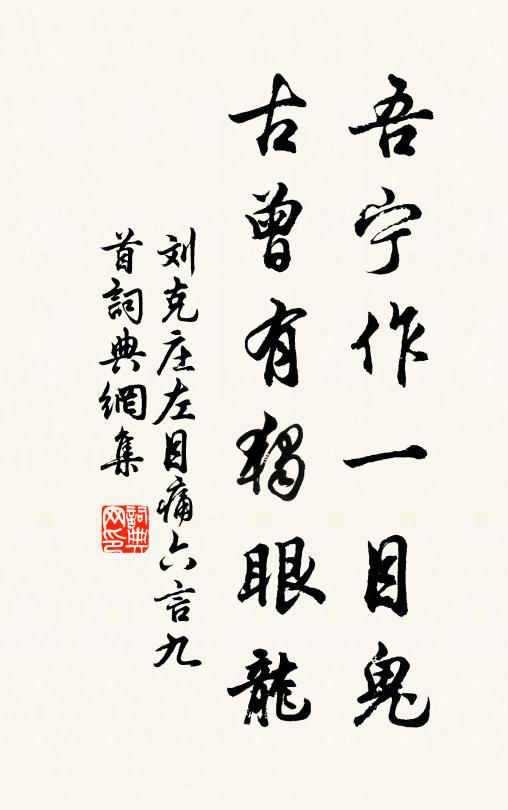 吾宁作一目鬼
古曾有獨眼龍
刘克庄左目痛六言九
首詞典網集
詞典
网印